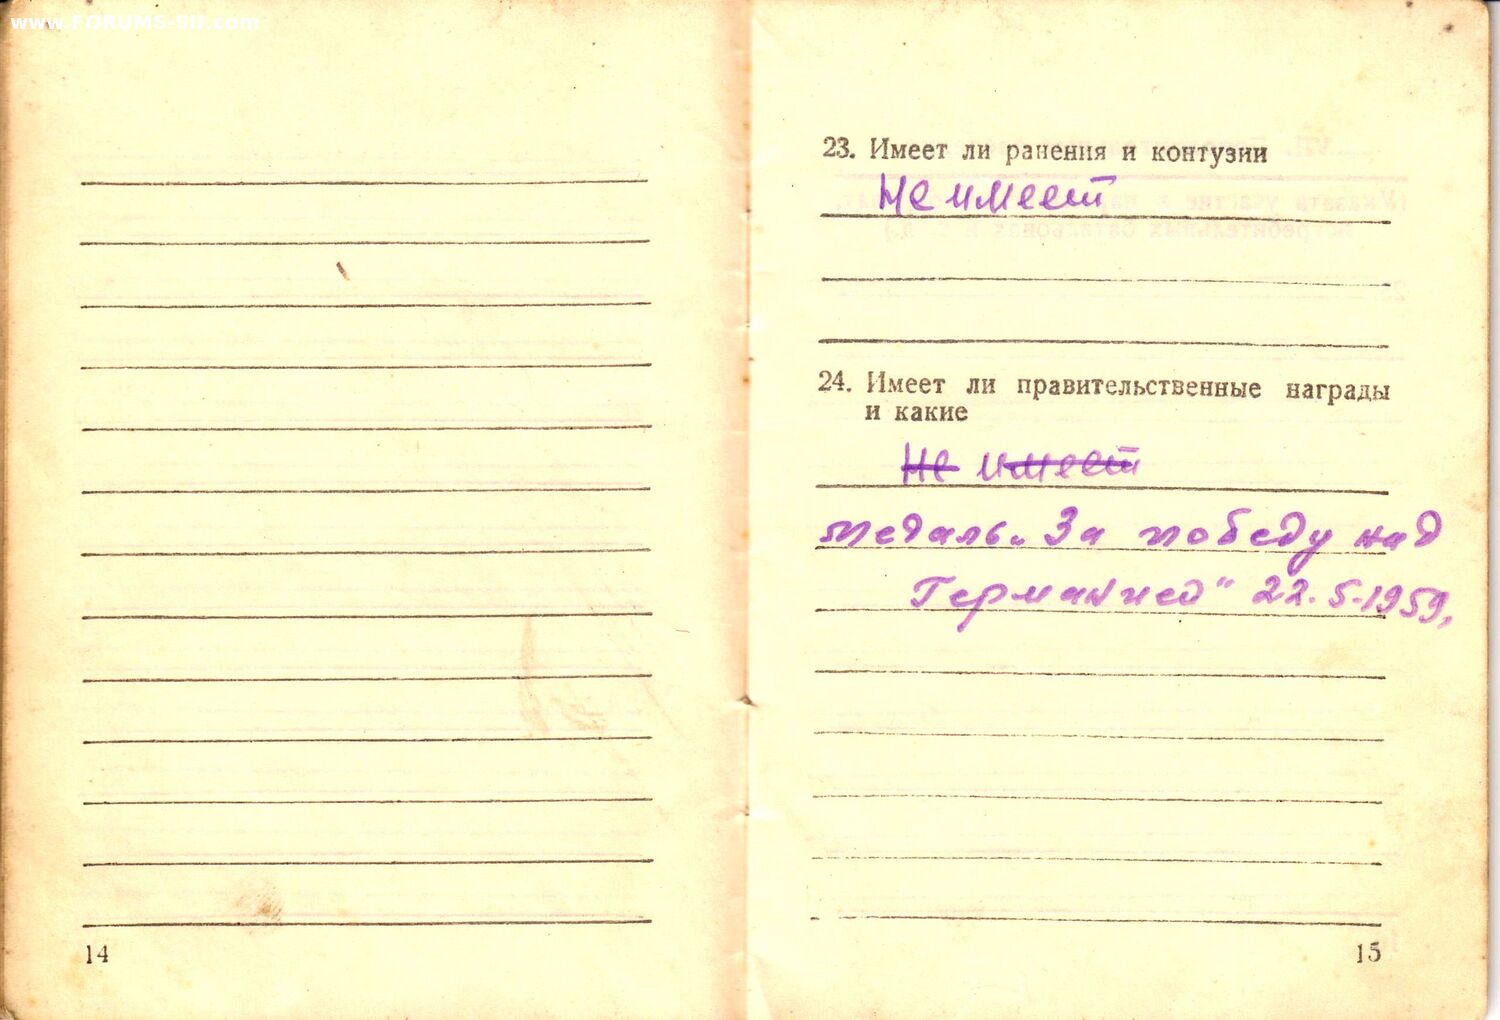 www.FORUMS-SU.com
23. Имеет ли ранения и контузии
Не имеет
24. Имеет ли правительственные награды
и какие
Не имеет
медаль „За победу над
Германией" 22.5-1959.
14
15